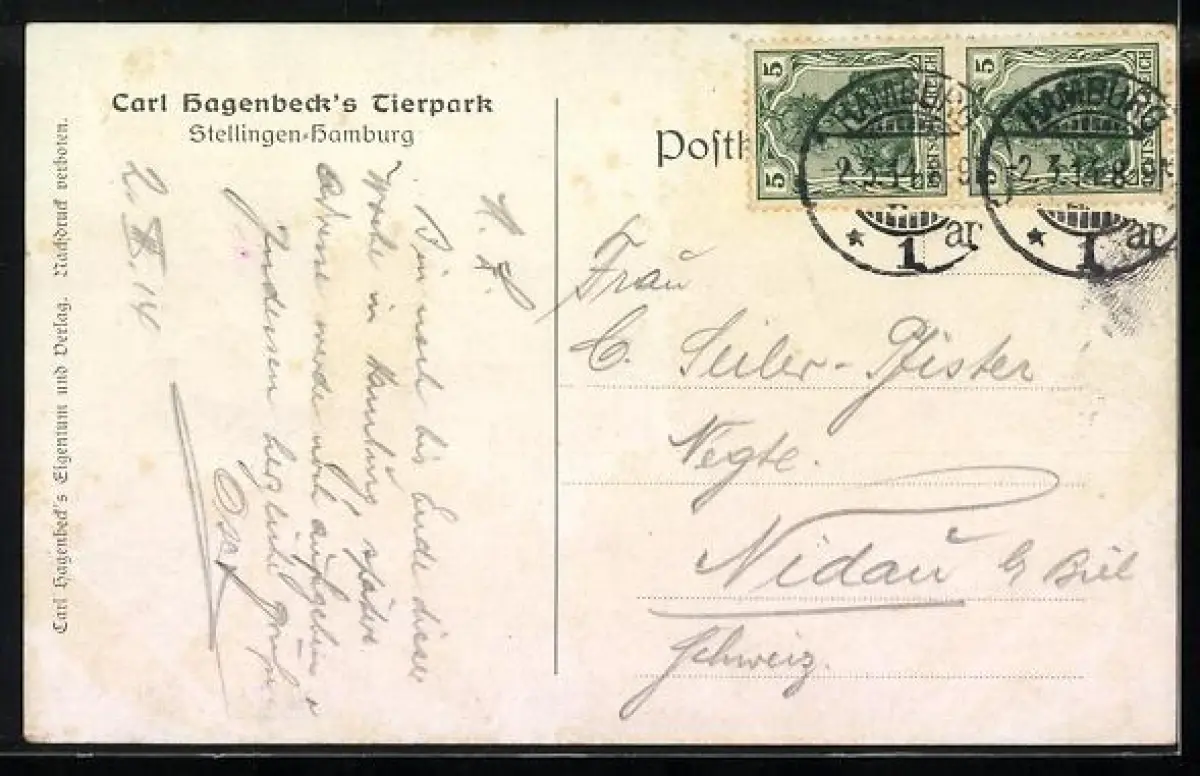 Carl Hagenbeck's Tierpark
Stellingen-Hamburg
Carl Hagenbeck's Eigentum und Verlag. Nachdruck verboten.
Postk
5 5
DEUTSCHES REICH
5 5
DEUTSCHES REICH
HAMBURG
2.3.14
* 1 ar
HAMBURG
2.3.14.8-9
* 1 ar
2. III. 14
Bin noch bis Ende dieser
Woche in Hamburg, spätere
Adresse werde noch aufgeben &
Indessen herzliche Grüße
Oskar
Frau
C. Seiler-Pfister
Negte.
Nidau b/ Biel
Schweiz.